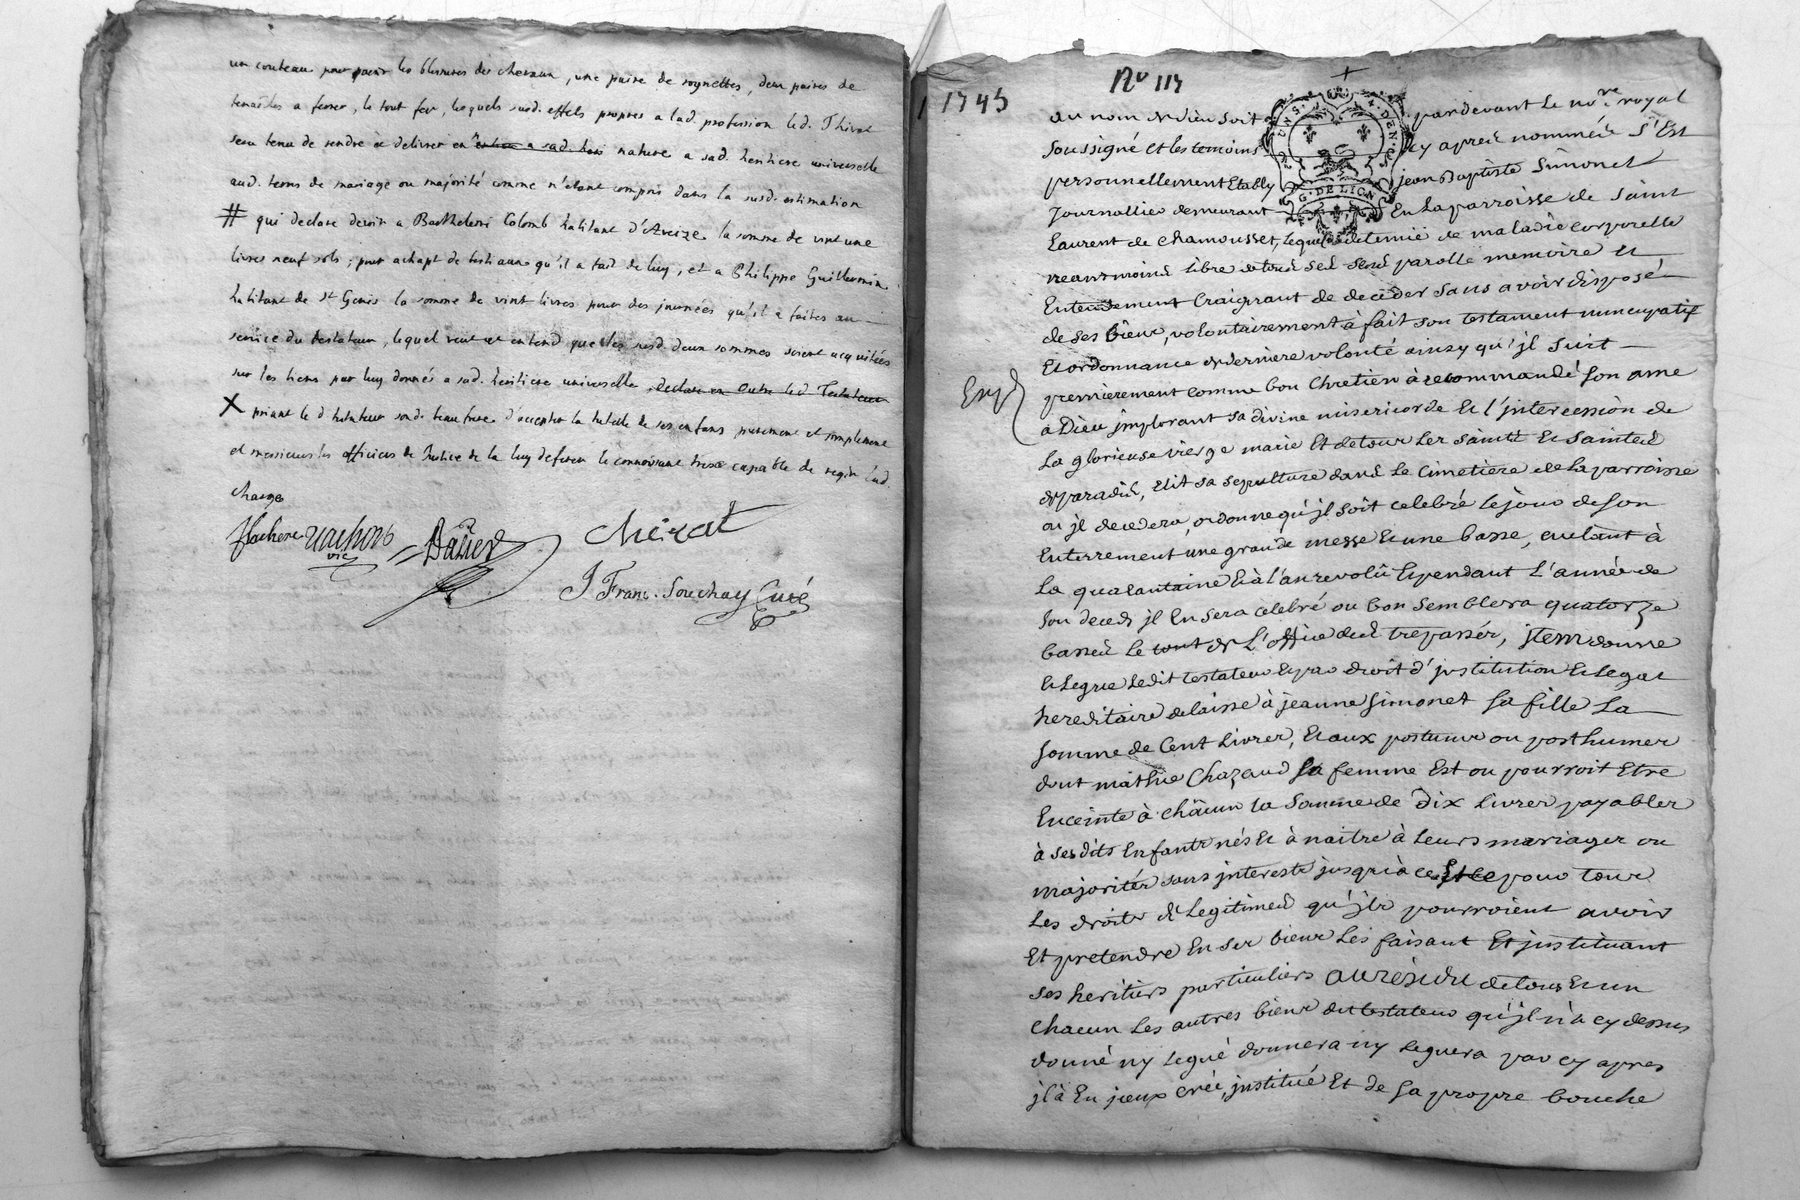 un couteau pour panser les blessures des chevaux, une paire de rognettes, deux paires de
tenailles a ferrer, le tout fer, lesquels susd. effets propres a lad. profession led. Thivot
sera tenu de rendre et delivrer en nature a sad. heritiere universelle
aud. tems de mariage ou majorité comme n'etant compris dans la susd. estimation
# qui declare devoir a Barthelemi Colomb habitant d'Aveize la somme de vint une
livres neuf sols; pour achapt de bestiaux qu'il a fait de luy, et a Philippe Guillermin
habitant de St Genis la somme de vint livres pour des journées qu'il a faites au
service du testateur, lequel veut et entend que les susd. deux sommes soient acquittées
sur les biens par luy donnés a sad. heritiere universelle, declare en outre led. Testateur
X priant le d. testateur sond. beau frere d'accepter la tutelle de ses enfans purement et simplement
et messieurs les officiers de Justice de la luy deferer le connoissant tres capable de regir lad.
charge
Flachere Vachon Dalier Cherat
vic
J Franc. Souchay Curé
1745
No 117
au nom de Dieu soit par devant le nore royal
soussigné et les temoins cy apres nommés s'Est
personnellement Etably jean Baptiste Simonet
Journallier demeurant En La parroisse de saint
UNS. DEN.
G. DE LION
Laurent de chamousset, lequel detenu de maladie corporelle
neantmoins libre de tous ses sens parolle memoire et
Entendement Craignant de deceder sans avoir disposé
de ses biens, volontairement à fait son testament nuncupatif
Et ordonnance de derniere volonté ainsy qu'jl suit
Exp
premierement comme bon Chretien à recommandé son ame
à Dieu jmplorant sa divine misericorde et l'jntercession de
La glorieuse vierge marie Et de tous Les saints et saintes
de paradis, Elit sa sepulture dans Le Cimetière de La parroisse
ou jl decedera, ordonne qu'jl soit celebré le jour de son
Enterrement une grande messe et une basse, autant à
La quarantaine et à l'an revolû et pendant L'année de
son deceds jl En sera celebré ou bon semblera quatorze
basses Le tout de L'office des trepassés, jtem donne
et Legue Ledit testateur et par droit d'jnstitution et Legat
hereditaire delaisse à jeanne Simonet sa fille La
somme de Cent Livres, et aux postume ou posthumes
dont mathie Chazaud sa femme Est ou pourroit Etre
Enceinte à châcun la somme de Dix Livres payables
à ses dits Enfants nés et à naitre à Leurs mariages ou
majorités sans jnterests jusqu'à ce Et ce pour tous
Les droits de Legitimes qu'jls pourroient avoir
Et pretendre En ses biens Les faisant Et jnstituant
ses heritiers particuliers au residu de tous et un
chacun Les autres biens dut testateur qu'jl n'à cy dessus
donné ny Legué donnera ny Leguera par cy apres
jl à En jceux créé, jnstitué Et de sa propre bouche